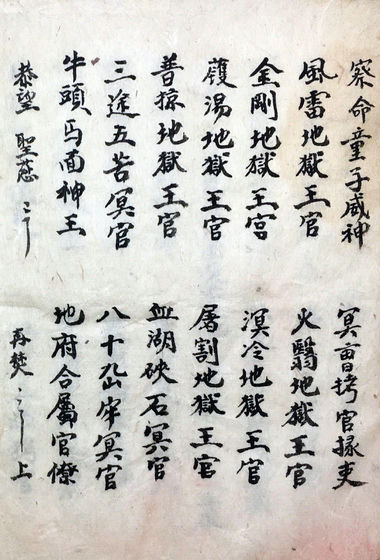 察命童子威神 冥曹拷官掾吏
風雷地獄王官 火翳地獄王官
金剛地獄王宮 溟冷地獄王官
鑊湯地獄王官 屠割地獄王官
普掠地獄王官 血湖硤石冥官
三途五苦冥官 八十牢冥官
牛頭馬面神王 地府合屬官僚
恭望 聖慈 再焚 上